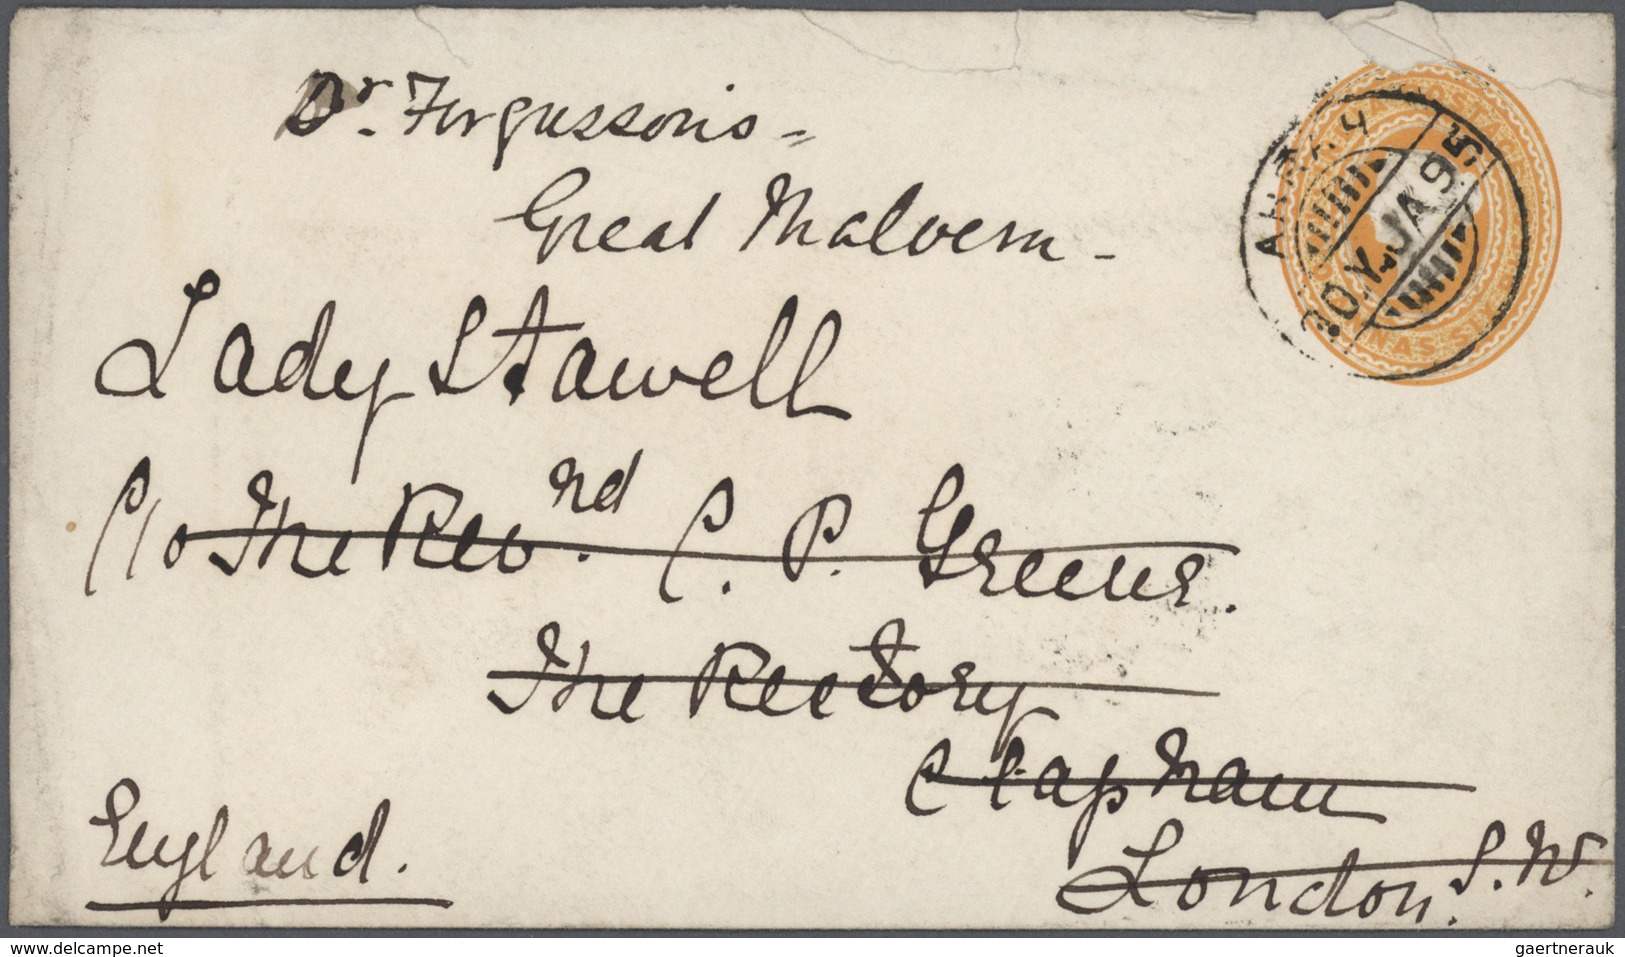 Dr. Fergusson's -
Great Malvern -
Lady Stawell
C/o The Revnd. C. P. Greene.
The Rectory
Clapham
London. S. W.
England.
JA 95
www.delcampe.net
gaertnerauk